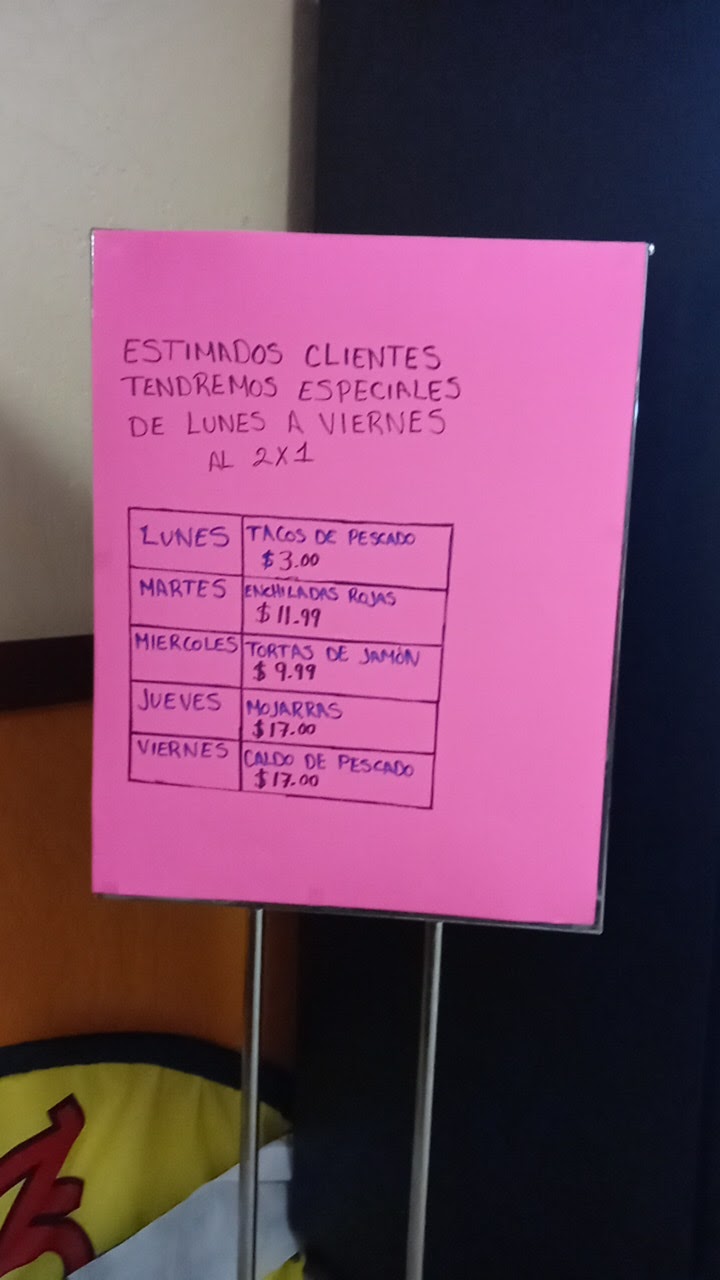 ESTIMADOS CLIENTES
TENDREMOS ESPECIALES
DE LUNES A VIERNES
AL 2X1
LUNES TACOS DE PESCADO
$3.00
MARTES ENCHILADAS ROJAS
$11.99
MIERCOLES TORTAS DE JAMÓN
$9.99
JUEVES MOJARRAS
$17.00
VIERNES CALDO DE PESCADO
$17.00